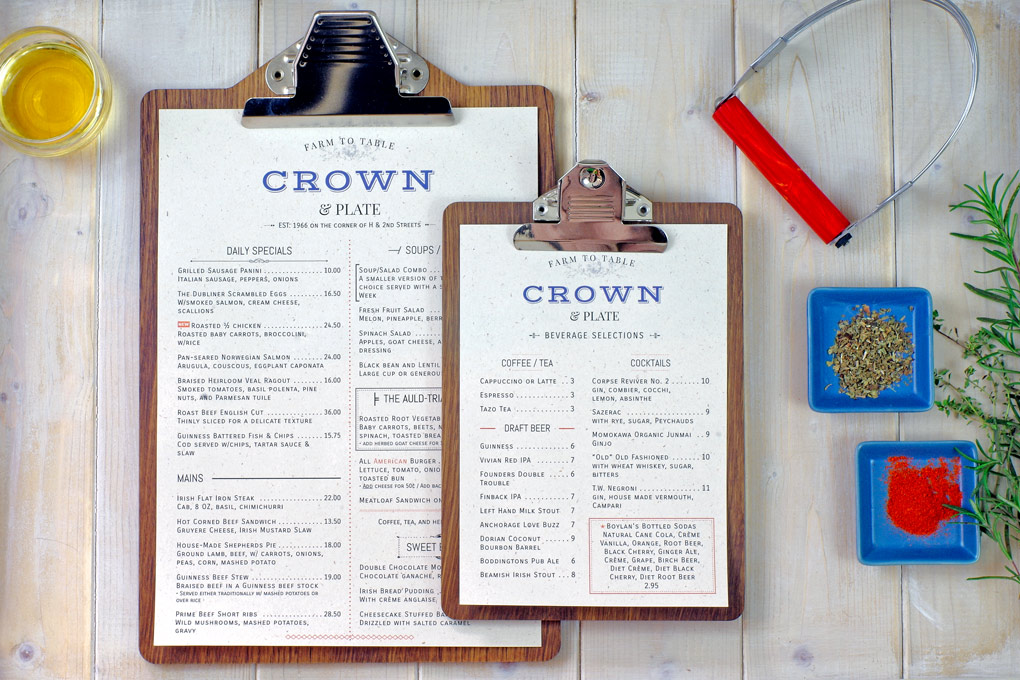 FARM TO TABLE
CROWN
& PLATE
EST: 1966 ON THE CORNER OF H & 2ND STREETS
DAILY SPECIALS
GRILLED SAUSAGE PANINI ........... 10.00
ITALIAN SAUSAGE, PEPPERS, ONIONS
THE DUBLINER SCRAMBLED EGGS ....... 16.50
W/SMOKED SALMON, CREAM CHEESE,
SCALLIONS
NEW ROASTED ½ CHICKEN ............ 24.50
ROASTED BABY CARROTS, BROCCOLINI,
W/RICE
PAN-SEARED NORWEGIAN SALMON ...... 24.00
ARUGULA, COUSCOUS, EGGPLANT CAPONATA
BRAISED HEIRLOOM VEAL RAGOUT ...... 16.00
SMOKED TOMATOES, BASIL POLENTA, PINE
NUTS, AND PARMESAN TUILE
ROAST BEEF ENGLISH CUT ........... 36.00
THINLY SLICED FOR A DELICATE TEXTURE
GUINNESS BATTERED FISH & CHIPS ..... 15.75
COD SERVED W/CHIPS, TARTAR SAUCE &
SLAW
MAINS
IRISH FLAT IRON STEAK ............ 22.00
CAB, 8 OZ, BASIL, CHIMICHURRI
HOT CORNED BEEF SANDWICH ......... 13.50
GRUYERE CHEESE, IRISH MUSTARD SLAW
HOUSE-MADE SHEPHERDS PIE ......... 18.00
GROUND LAMB, BEEF, W/ CARROTS, ONIONS,
PEAS, CORN, MASHED POTATO
GUINNESS BEEF STEW ............... 19.00
BRAISED BEEF IN A GUINNESS BEEF STOCK
- SERVED EITHER TRADITIONALLY W/ MASHED POTATOES OR
OVER RICE
PRIME BEEF SHORT RIBS ............ 28.50
WILD MUSHROOMS, MASHED POTATOES,
GRAVY
SOUPS /
SOUP/SALAD COMBO ..
A SMALLER VERSION OF
CHOICE SERVED WITH A S
WEEK
FRESH FRUIT SALAD ..
MELON, PINEAPPLE, BERR
SPINACH SALAD ......
APPLES, GOAT CHEESE, A
DRESSING
BLACK BEAN AND LENTIL
LARGE CUP OR GENEROU
THE AULD-TRIA
ROASTED ROOT VEGETAB
BABY CARROTS, BEETS, N
SPINACH, TOASTED BREA
- ADD HERBED GOAT CHEESE FOR
ALL AMERICAN BURGER .
LETTUCE, TOMATO, ONIO
TOASTED BUN
- ADD CHEESE FOR 50¢ / ADD BAC
MEATLOAF SANDWICH O
COFFEE, TEA, AND HE
SWEET
DOUBLE CHOCOLATE MO
CHOCOLATE GANACHE, R
IRISH BREAD PUDDING .
WITH CRÈME ANGLAISE,
CHEESECAKE STUFFED BA
DRIZZLED WITH SALTED CARAMEL
FARM TO TABLE
CROWN
& PLATE
BEVERAGE SELECTIONS
COFFEE / TEA
CAPPUCCINO OR LATTE .. 3
ESPRESSO ............ 3
TAZO TEA ............ 3
DRAFT BEER
GUINNESS ............ 6
VIVIAN RED IPA ....... 7
FOUNDERS DOUBLE .... 6
TROUBLE
FINBACK IPA ......... 7
LEFT HAND MILK STOUT 7
ANCHORAGE LOVE BUZZ 7
DORIAN COCONUT ..... 9
BOURBON BARREL
BODDINGTONS PUB ALE 6
BEAMISH IRISH STOUT ... 8
COCKTAILS
CORPSE REVIVER NO. 2 ....... 10
GIN, COMBIER, COCCI,
LEMON, ABSINTHE
SAZERAC .................. 9
WITH RYE, SUGAR, PEYCHAUDS
MOMOKAWA ORGANIC JUNMAI .. 9
GINJO
"OLD" OLD FASHIONED ....... 10
WITH WHEAT WHISKEY, SUGAR,
BITTERS
T.W. NEGRONI ............. 11
GIN, HOUSE MADE VERMOUTH,
CAMPARI
★BOYLAN'S BOTTLED SODAS
NATURAL CANE COLA, CRÈME
VANILLA, ORANGE, ROOT BEER,
BLACK CHERRY, GINGER ALE,
CRÈME, GRAPE, BIRCH BEER,
DIET CRÈME, DIET BLACK
CHERRY, DIET ROOT BEER
2.95